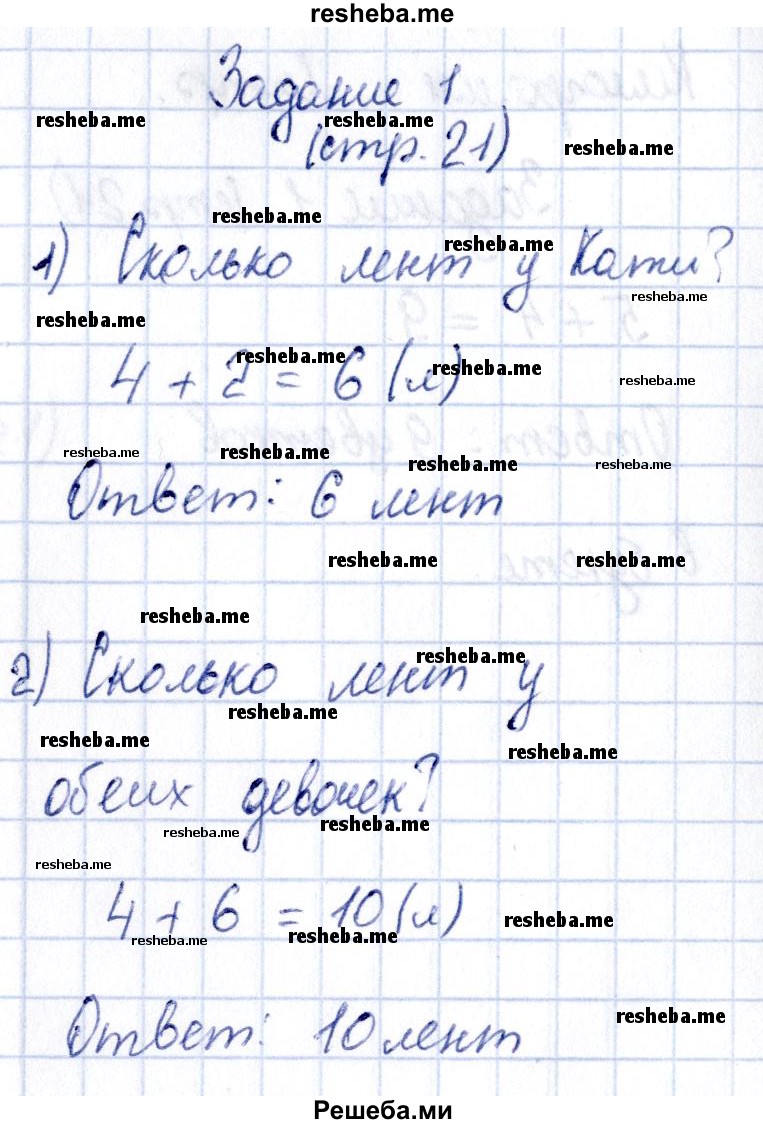 resheba.me
Задание 1
resheba.me resheba.me
(стр. 21) resheba.me
resheba.me
1) Сколько лент у Кати?
resheba.me
resheba.me
resheba.me
4 + 2 = 6 (л)
resheba.me resheba.me resheba.me
resheba.me resheba.me resheba.me resheba.me
Ответ: 6 лент
resheba.me resheba.me
resheba.me
2) Сколько лент у
resheba.me
resheba.me
resheba.me resheba.me
обеих девочек?
resheba.me resheba.me
resheba.me
4 + 6 = 10 (л)
resheba.me resheba.me resheba.me
resheba.me
Ответ: 10 лент
Решеба.ми